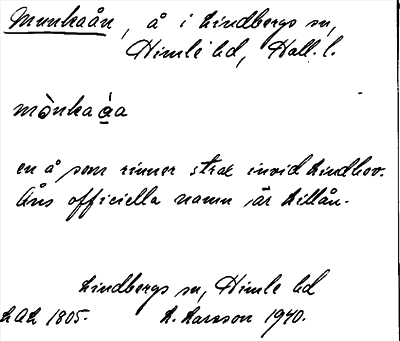 Munkaån, å i Lindbergs sn,
Himle hd, Hall. l.
mònka å̀a
en å som rinner strax invid Lindhov.
Åns officiella namn är Lillån.
Lindbergs sn, Himle hd
LAL 1805. L. Larsson 1940.